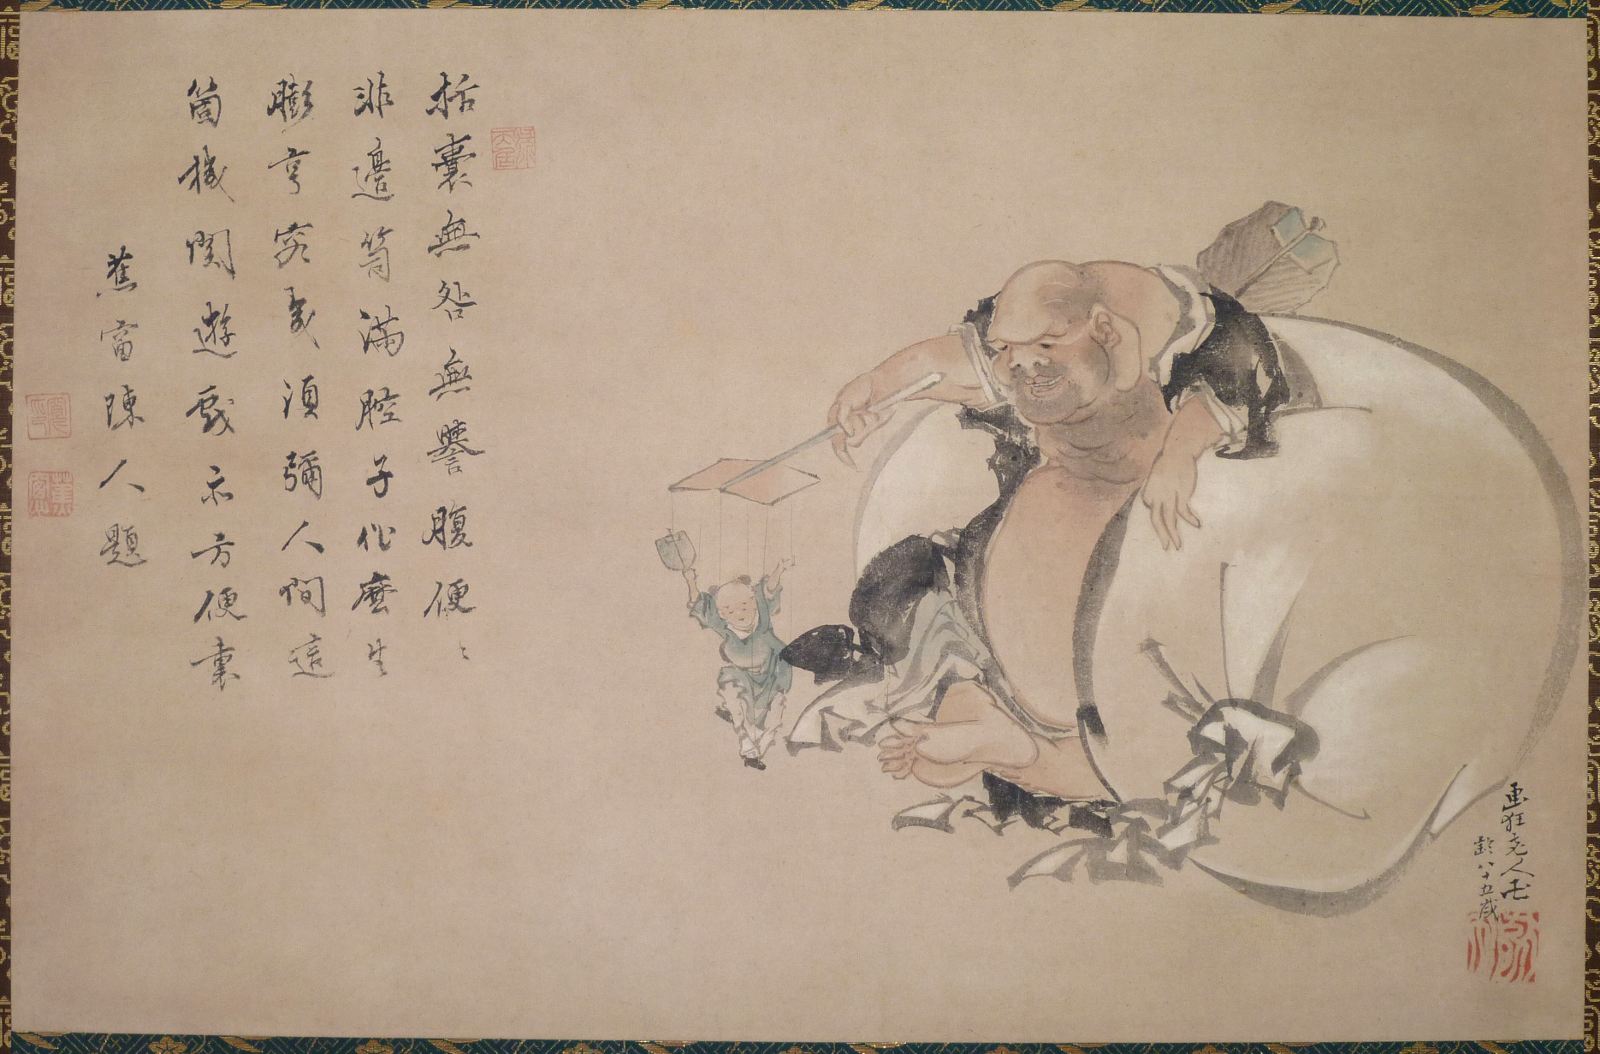 括囊無咎無譽腹便〻
非邊笥滿腔子作麼生
膨亨容受須彌人間這
箇機関遊戯示方便裏
蕉窗陳人題
画狂老人卍
齢八十五歳